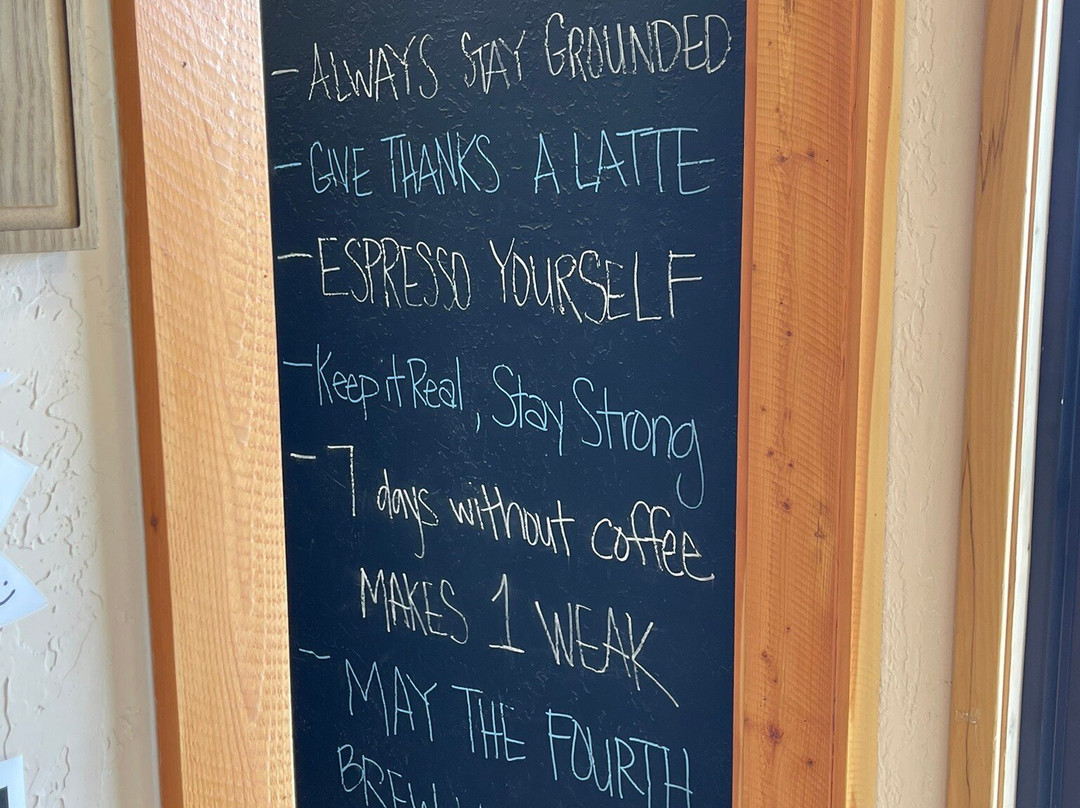 - ALWAYS STAY GROUNDED
- GIVE THANKS A LATTE
- ESPRESSO YOURSELF
- Keep it Real, Stay Strong
- 7 days without coffee
MAKES 1 WEAK
- MAY THE FOURTH
BREW